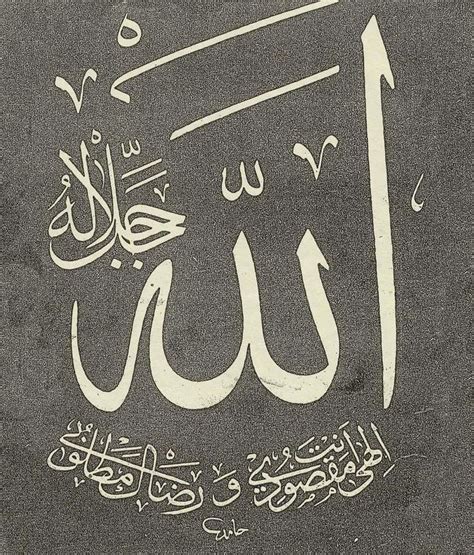 الله
جل جلاله
إلهي أنت مقصودي ورضاك مطلوبي
حامد